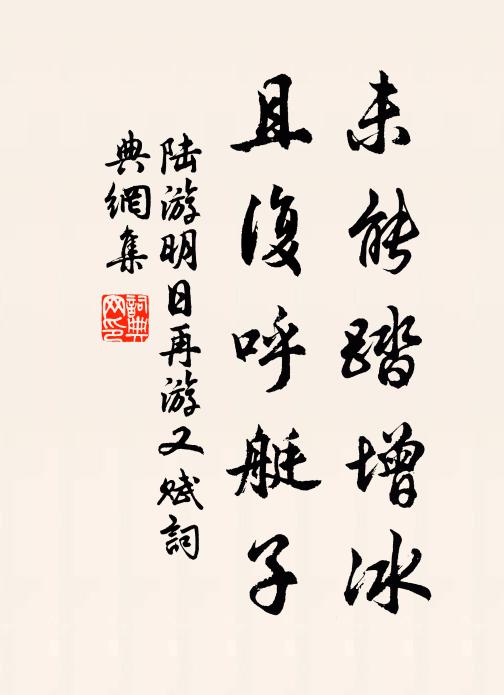 未能踏增冰
且復呼艇子
陆游明日再游又赋詞
典網集
詞典網印